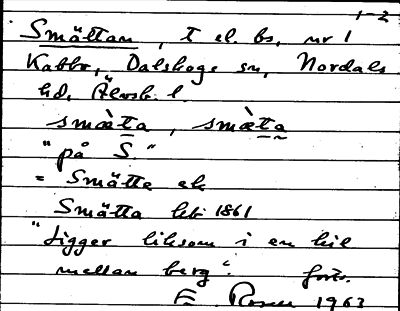 1-2
Smättan, t el. bs, nr 1
Kabbo, Dalskogs sn, Nordals
hd, Älvsb. l.
smæ̀ta, smæ̀ta
"på S."
= Smätte ek
Smätta hk 1861
"Ligger liksom i en kil
mellan berg". forts.
E Rosen 1963